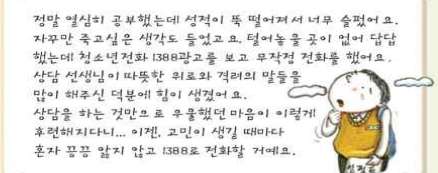 정말 열심히 공부했는데 성적이 뚝 떨어져서 너무 슬펐어요.
자꾸만 죽고싶은 생각도 들었고요. 털어놓을 곳이 없어 답답
했는데 청소년전화 1388광고를 보고 무작정 전화를 했어요.
상담 선생님이 따뜻한 위로와 격려의 말들을
많이 해주신 덕분에 힘이 생겼어요.
상담을 하는 것만으로 우울했던 마음이 이렇게
후련해지다니... 이젠, 고민이 생길 때마다
혼자 끙끙 앓지 않고 1388로 전화할 거예요.
성적표